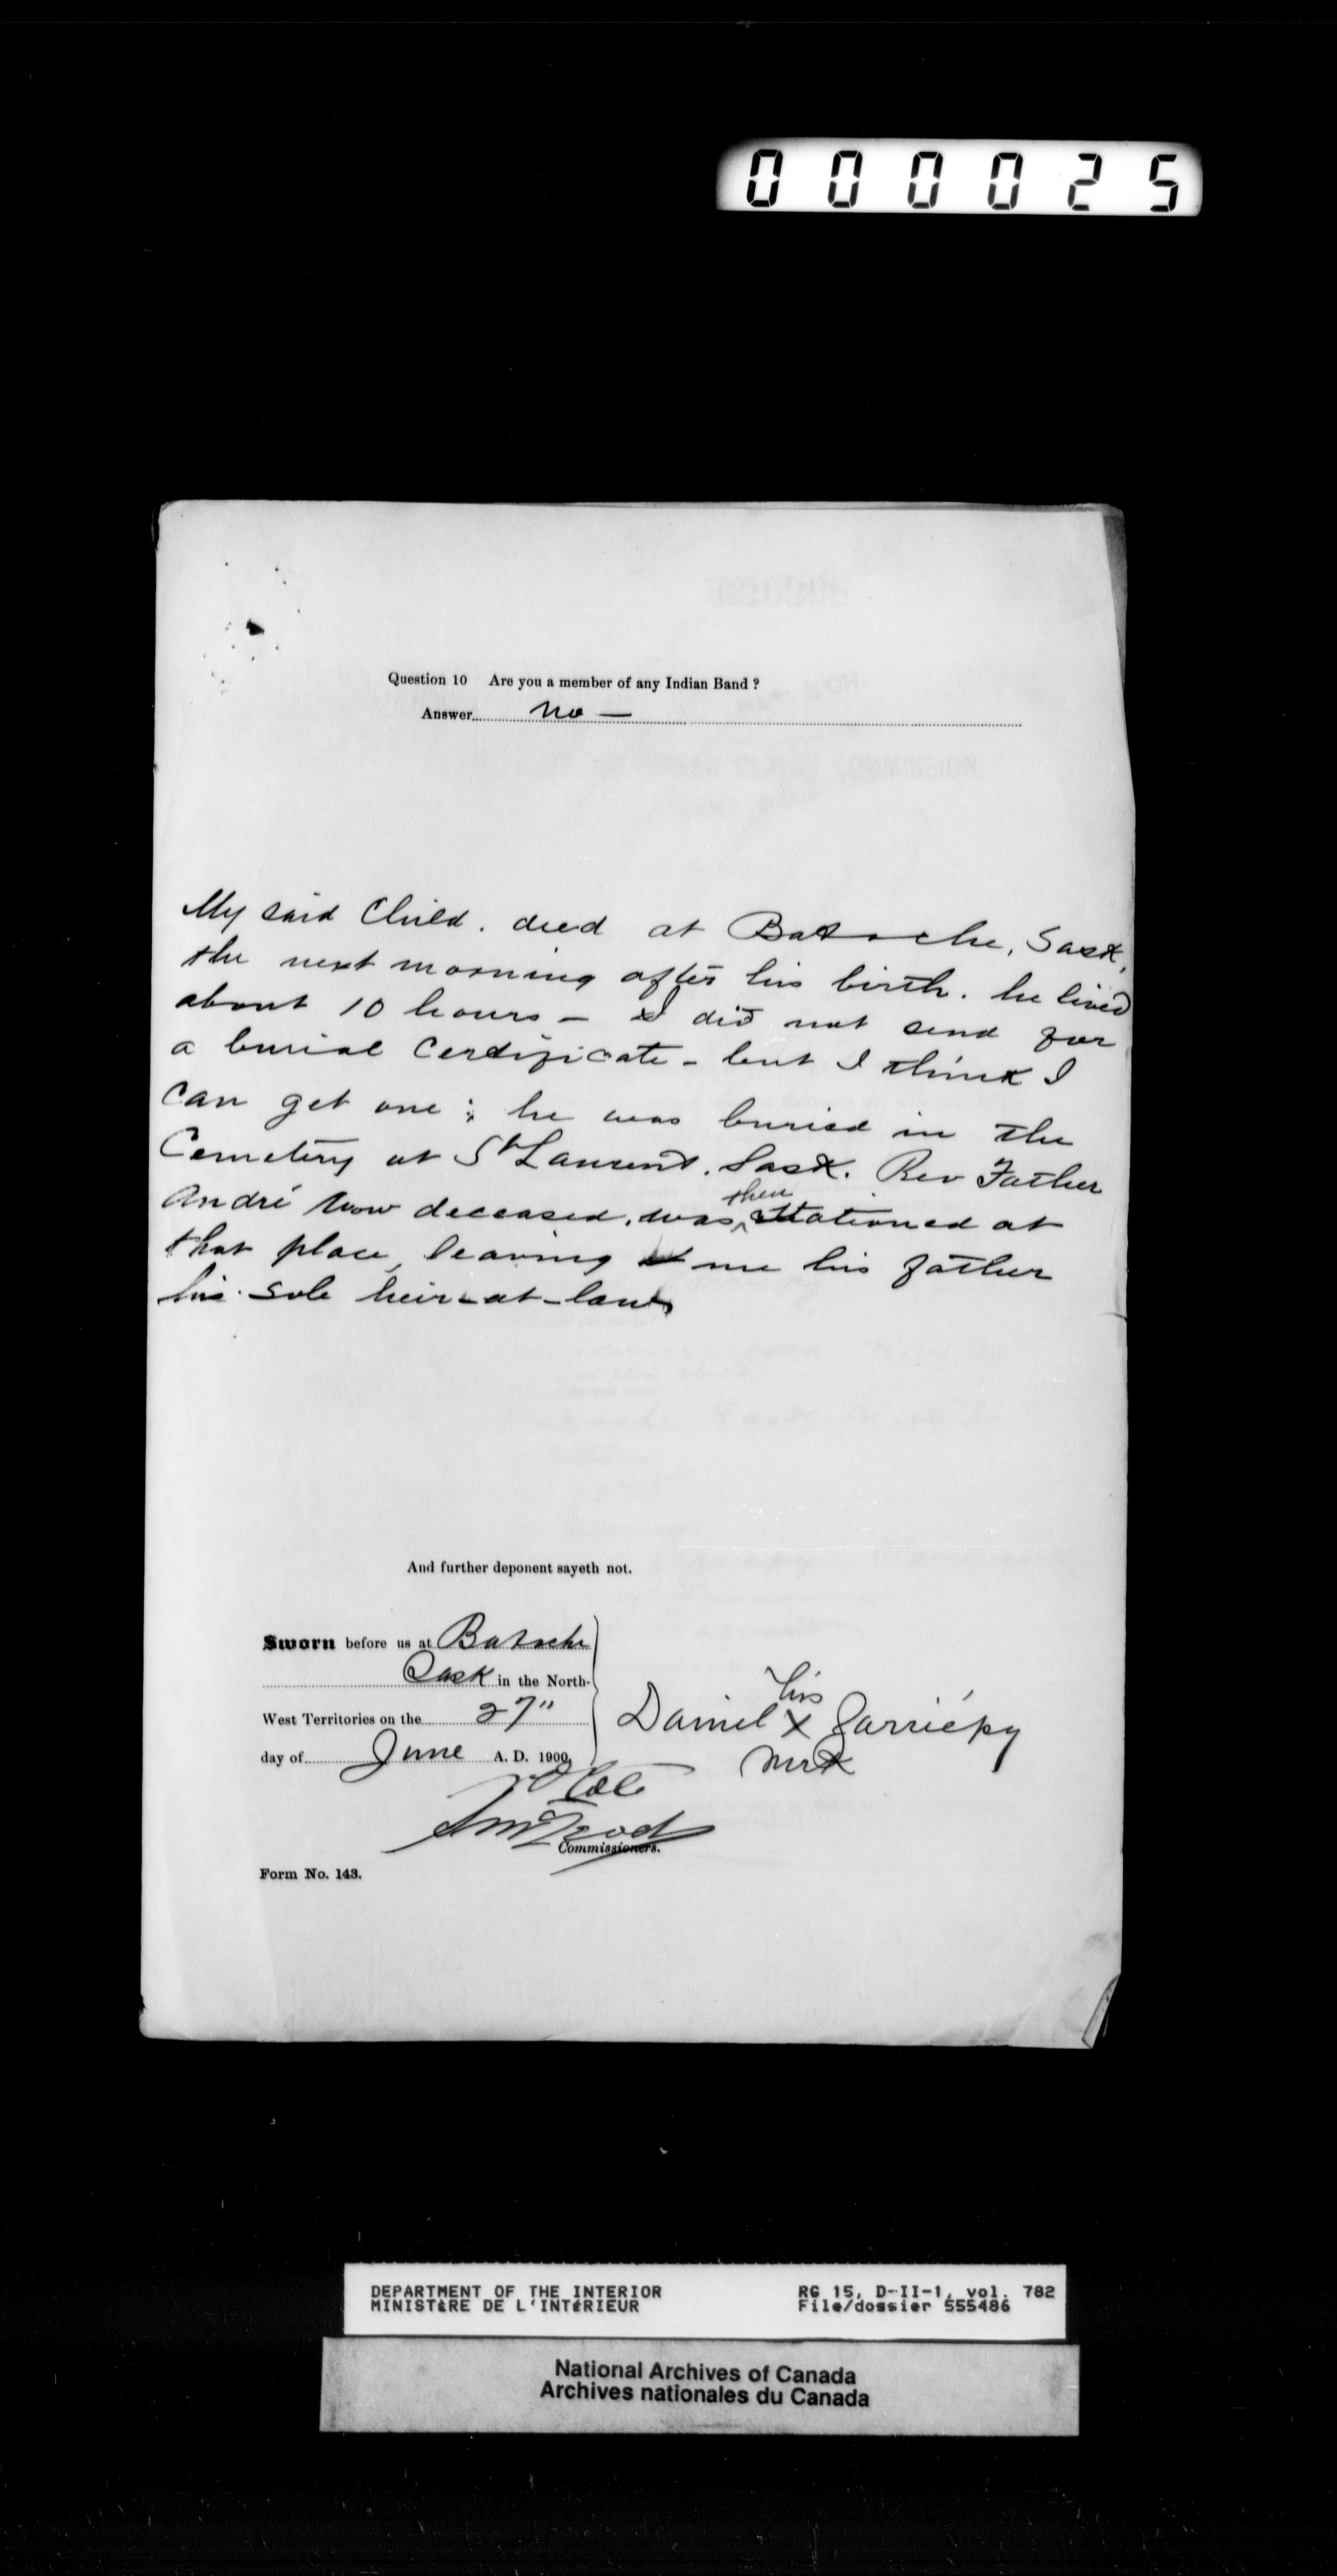 000025
Question 10 Are you a member of any Indian Band ?
Answer No —
My said Child. died at Batoche, Sask,
the next morning after his birth. he lived
about 10 hours — I did not send for
a burial Certificate - but I think I
can get one ; he was buried in the
Cemetery at St Laurent. Sask. Rev Father
André now deceased, was then stationed at
that place, leaving me his father
his sole heir-at-law
And further deponent sayeth not.
Sworn before us at Batoche
Sask in the North-
West Territories on the 27"
day of June A. D. 1900,
his
Daniel X Garriépy
mrk
Coté
Commissioners.
Form No. 143.
DEPARTMENT OF THE INTERIOR RG 15, D-II-1, vol. 782
MINISTÈRE DE L'INTÉRIEUR File/dossier 555486
National Archives of Canada
Archives nationales du Canada